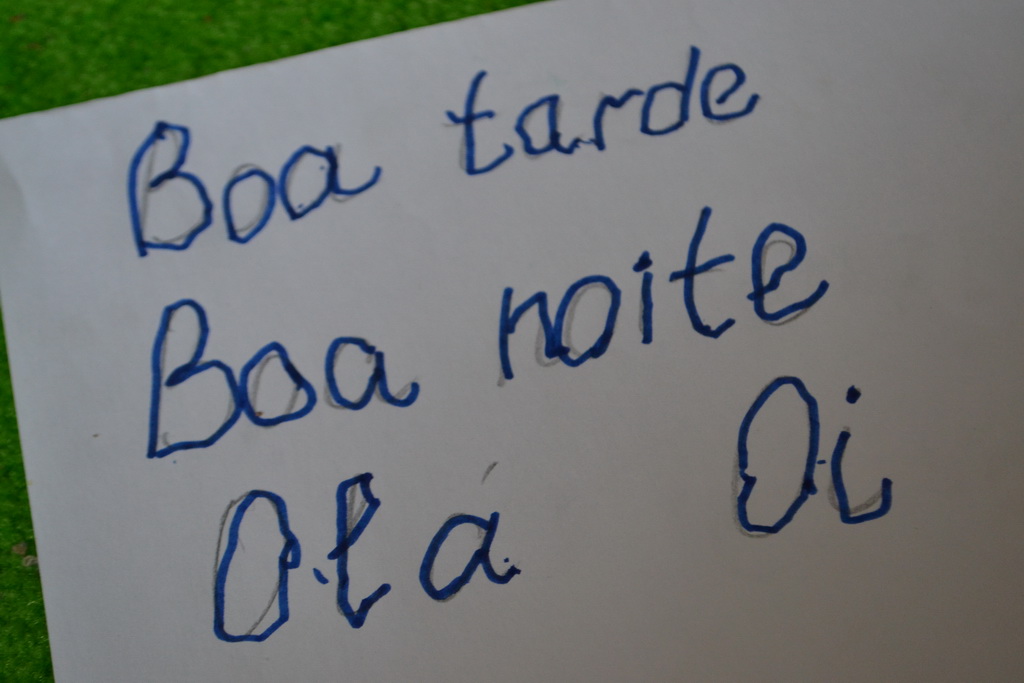 Boa tarde
Boa noite
Olá Oi